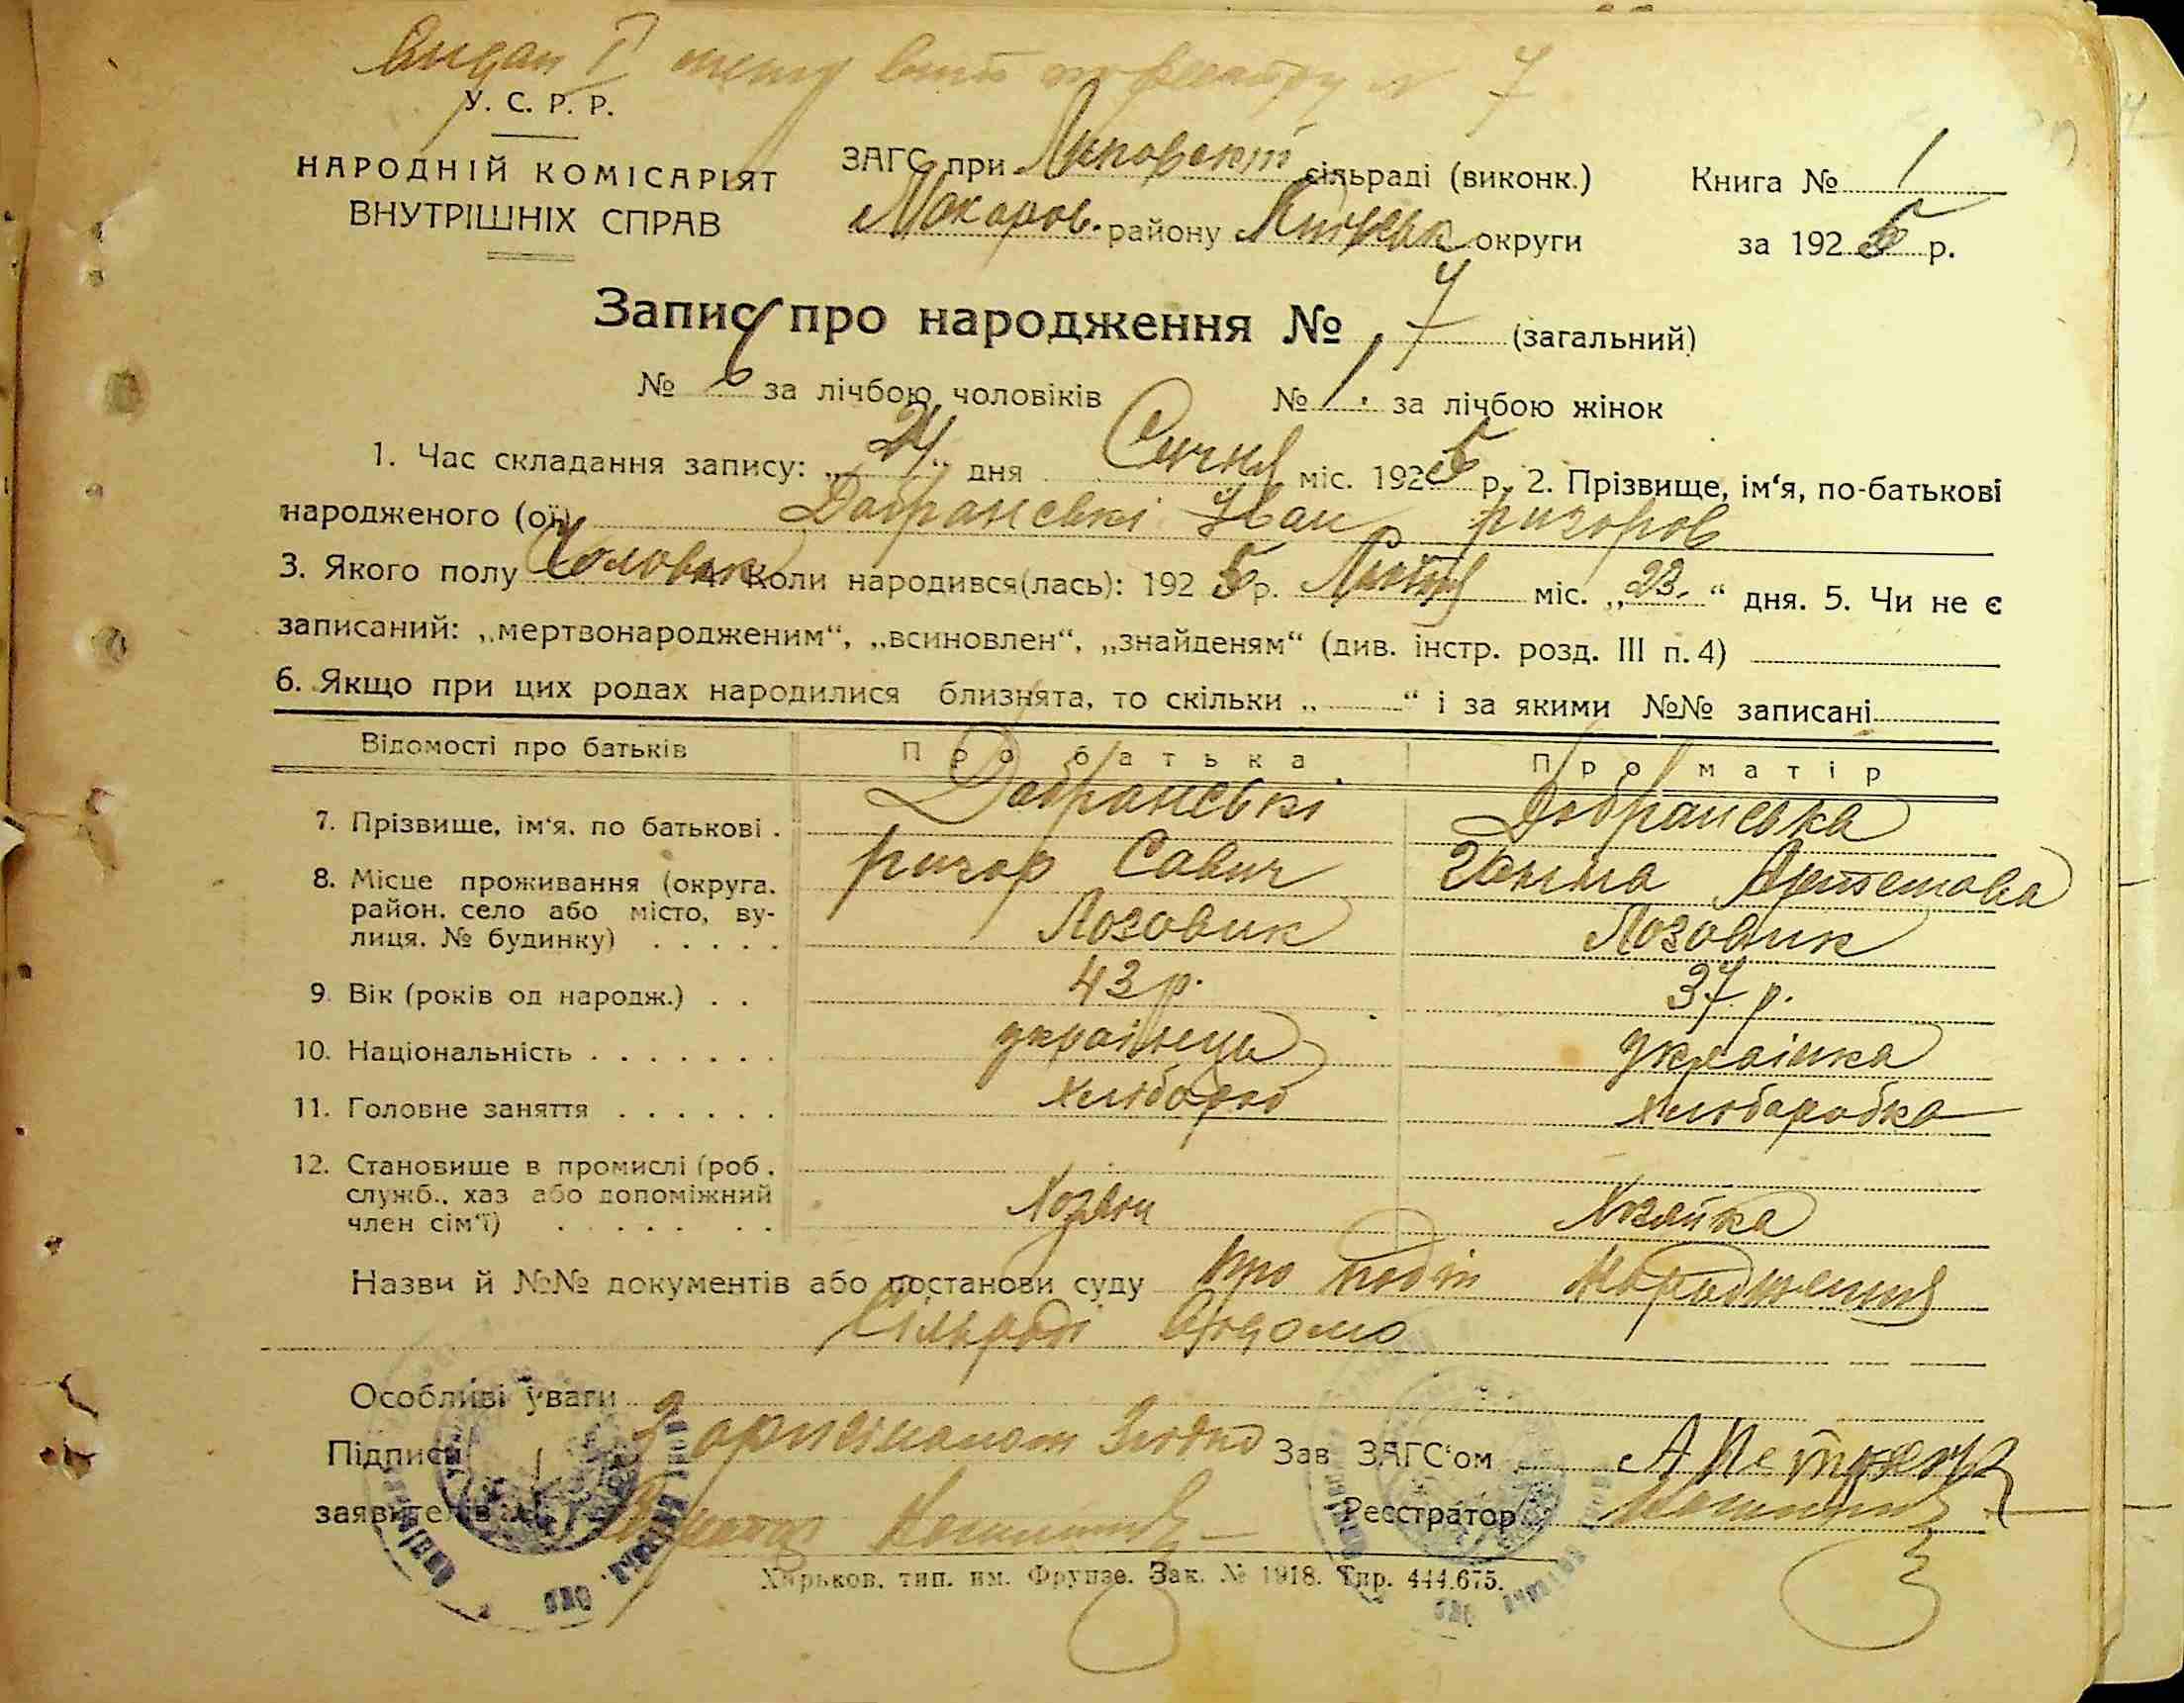 У. С. Р. Р.
НАРОДНІЙ КОМІСАРІЯТ
ВНУТРІШНІХ СПРАВ
ЗАГС при Липовскій сільраді (виконк.)
Макаров. району Київськ округи
Книга № 1
за 1925 р.
Запис про народження № 7 (загальний)
№ 6 за лічбою чоловіків № 1. за лічбою жінок
1. Час складання запису: „24„ дня Січня міс. 1925 р. 2. Прізвище, ім‘я, по-батькові
народженого (ої) Добранські Іван Григоров
3. Якого полу Чоловік 4. Коли народився(лась): 1925 р. міс. „23.“ дня. 5. Чи не є
записаний: „мертвонародженим“, „всиновлен“, „знайденям“ (див. інстр. розд. III п. 4)
6. Якщо при цих родах народилися близнята, то скільки „ “ і за якими №№ записані
Відомості про батьків Про батька Про матір
7. Прізвище, ім‘я, по батькові . Добранські Добранська
8. Місце проживання (округа, Григор Савич Ганна Артемова
район, село або місто, ву-
лиця, № будинку) . . . . . Лозовик Лозовик
9. Вік (років од народж.) . . 43 р. 37 р.
10. Національність . . . . . . . українець українка
11. Головне заняття . . . . . . хлібороб хлібаробка
12. Становище в промислі (роб.,
служб., хаз або допоміжний Хозяін Хозяйка
член сім‘ї) . . . . . . .
Назви й №№ документів або постанови суду про подію народження
Сільраді відомо
Особливі уваги
Підписи З оригіналом згідно Зав ЗАГС‘ом
заявителів Реєстратор
Харьков. тип. им. Фрунзе. Зак. № 1918. Тир. 444.675.